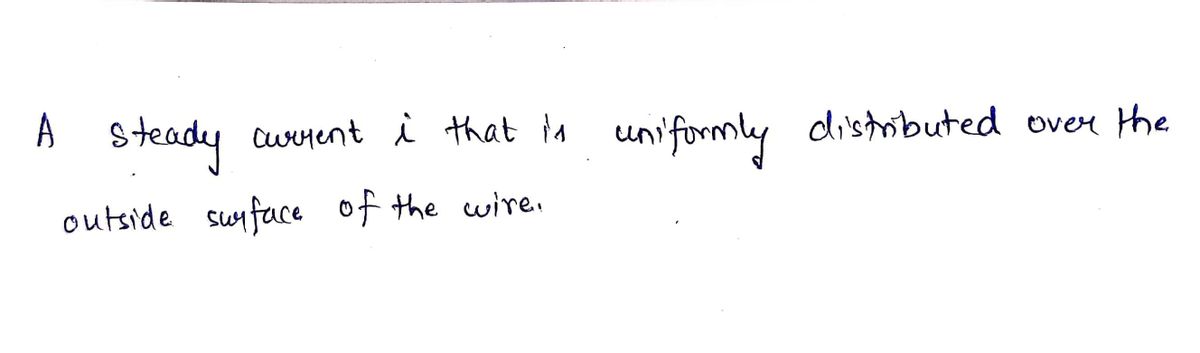 A steady current i that is uniformly distributed over the
outside surface of the wire.